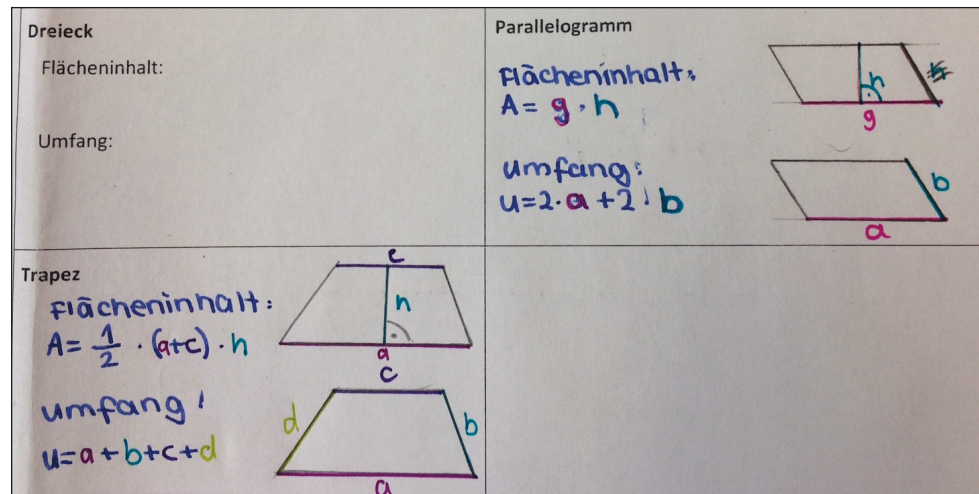 Dreieck
Flächeninhalt:
Umfang:
Parallelogramm
Flächeninhalt:
A = g · h
h
g
Umfang:
u=2·a+2·b
b
a
Trapez
Flächeninhalt:
A = 1/2 · (a+c) · h
c
h
a
Umfang:
u=a+b+c+d
c
d
b
a